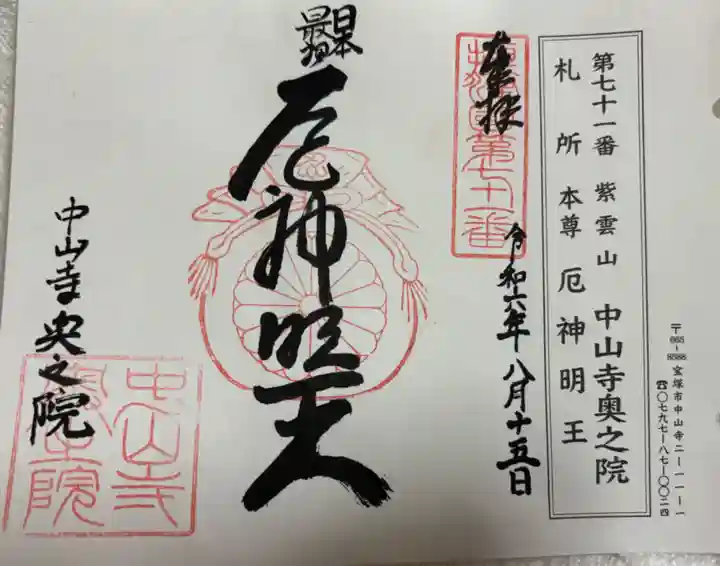 第七十一番 紫雲山 中山寺奥之院
札所本尊 厄神明王
〒665-8588 宝塚市中山寺二ー一一ー一
☎〇七九七ー八七ー〇〇二四
奉拝
第七十一番
令和六年八月十五日
日本
最初
厄神明王
中山寺奥之院
中山寺
奥之院